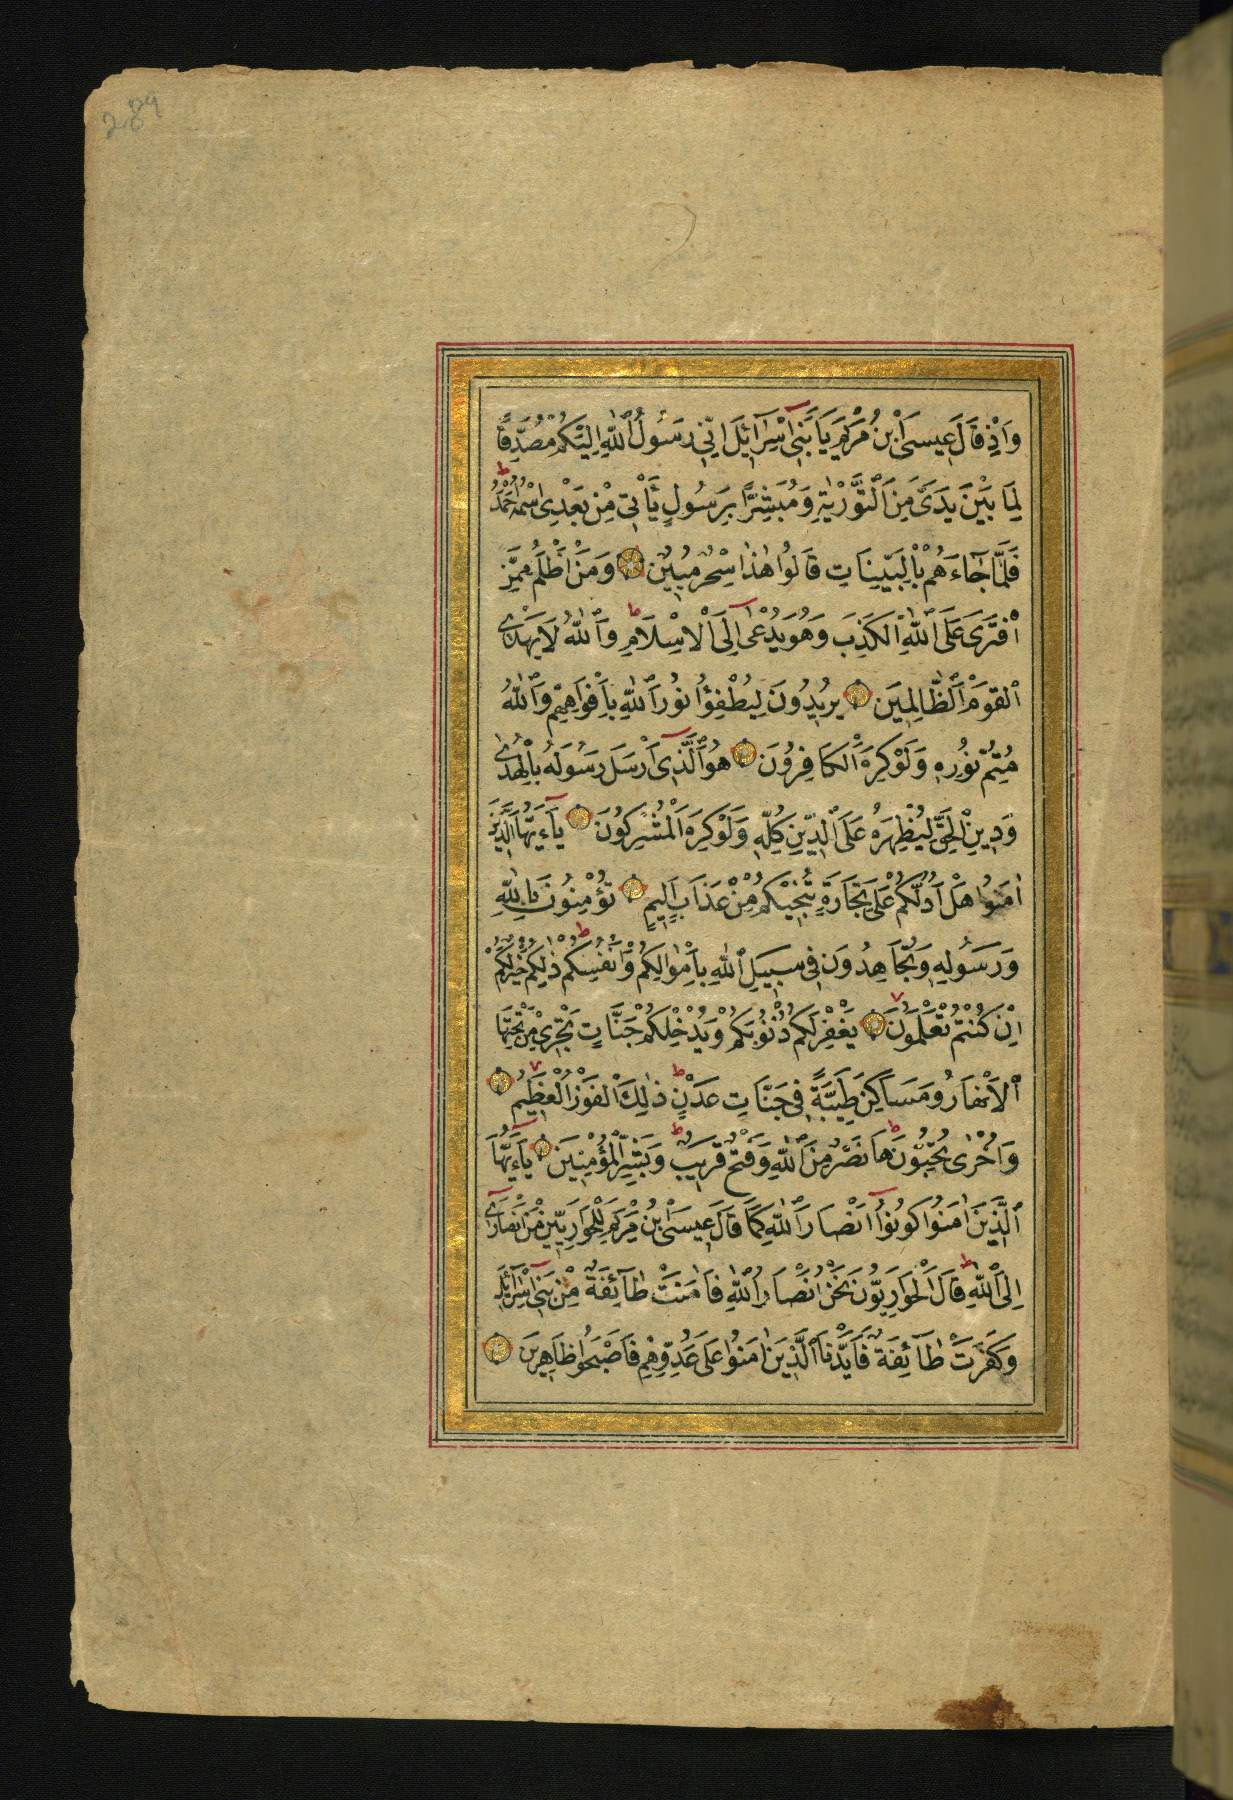 289
وَاِذْ قَالَ عِيسَى ابْنُ مَرْيَمَ يَا بَنِي اِسْرَآئِلَ اِنِّي رَسُولُ اللّٰهِ اِلَيْكُمْ مُصَدِّقًا
لِمَا بَيْنَ يَدَيَّ مِنَ التَّوْرٰيةِ وَمُبَشِّرًا بِرَسُولٍ يَأْتِي مِنْ بَعْدِى اسْمُهُ اَحْمَدُ ط
فَلَمَّا جَاءَهُمْ بِالْبَيِّنَاتِ قَالُوا هٰذَا سِحْرٌ مُبِينٌ وَمَنْ اَظْلَمُ مِمَّنِ
افْتَرَى عَلَى اللّٰهِ الْكَذِبَ وَهُوَ يُدْعٰى اِلَى الْاِسْلَامِ ط وَاللّٰهُ لَا يَهْدِى
الْقَوْمَ الظَّالِمِينَ يُرِيدُونَ لِيُطْفِؤُا نُورَ اللّٰهِ بِاَفْوَاهِهِمْ وَاللّٰهُ
مُتِمُّ نُورِهِ وَلَوْ كَرِهَ الْكَافِرُونَ هُوَ الَّذِى اَرْسَلَ رَسُولَهُ بِالْهُدٰى
وَدِينِ الْحَقِّ لِيُظْهِرَهُ عَلَى الدِّينِ كُلِّهِ وَلَوْ كَرِهَ الْمُشْرِكُونَ يَآءَيُّهَا الَّذِينَ
اٰمَنُوا هَلْ اَدُلُّكُمْ عَلَى تِجَارَةٍ تُنْجِيْكُمْ مِنْ عَذَابٍ اَلِيمٍ تُؤْمِنُونَ بِاللّٰهِ
وَرَسُولِهِ وَتُجَاهِدُونَ فِي سَبِيلِ اللّٰهِ بِاَمْوَالِكُمْ وَاَنْفُسِكُمْ ط ذٰلِكُمْ خَيْرٌ لَكُمْ
اِنْ كُنْتُمْ تَعْلَمُونَ يَغْفِرْ لَكُمْ ذُنُوبَكُمْ وَيُدْخِلْكُمْ جَنَّاتٍ تَجْرِي مِنْ تَحْتِهَا
الْاَنْهَارُ وَمَسَاكِنَ طَيِّبَةً فِي جَنَّاتِ عَدْنٍ ط ذٰلِكَ الْفَوْزُ الْعَظِيمُ
وَاُخْرٰى تُحِبُّونَهَا ط نَصْرٌ مِنَ اللّٰهِ وَفَتْحٌ قَرِيبٌ ط وَبَشِّرِ الْمُؤْمِنِينَ يَآءَيُّهَا
الَّذِينَ اٰمَنُوا كُونُوا اَنْصَارَ اللّٰهِ كَمَا قَالَ عِيسَى ابْنُ مَرْيَمَ لِلْحَوَارِيِّينَ مَنْ اَنْصَارِى
اِلَى اللّٰهِ ط قَالَ الْحَوَارِيُّونَ نَحْنُ اَنْصَارُ اللّٰهِ فَاٰمَنَتْ طَآئِفَةٌ مِنْ بَنِي اِسْرَآئِلَ
وَكَفَرَتْ طَآئِفَةٌ فَاَيَّدْنَا الَّذِينَ اٰمَنُوا عَلَى عَدُوِّهِمْ فَاَصْبَحُوا ظَاهِرِينَ